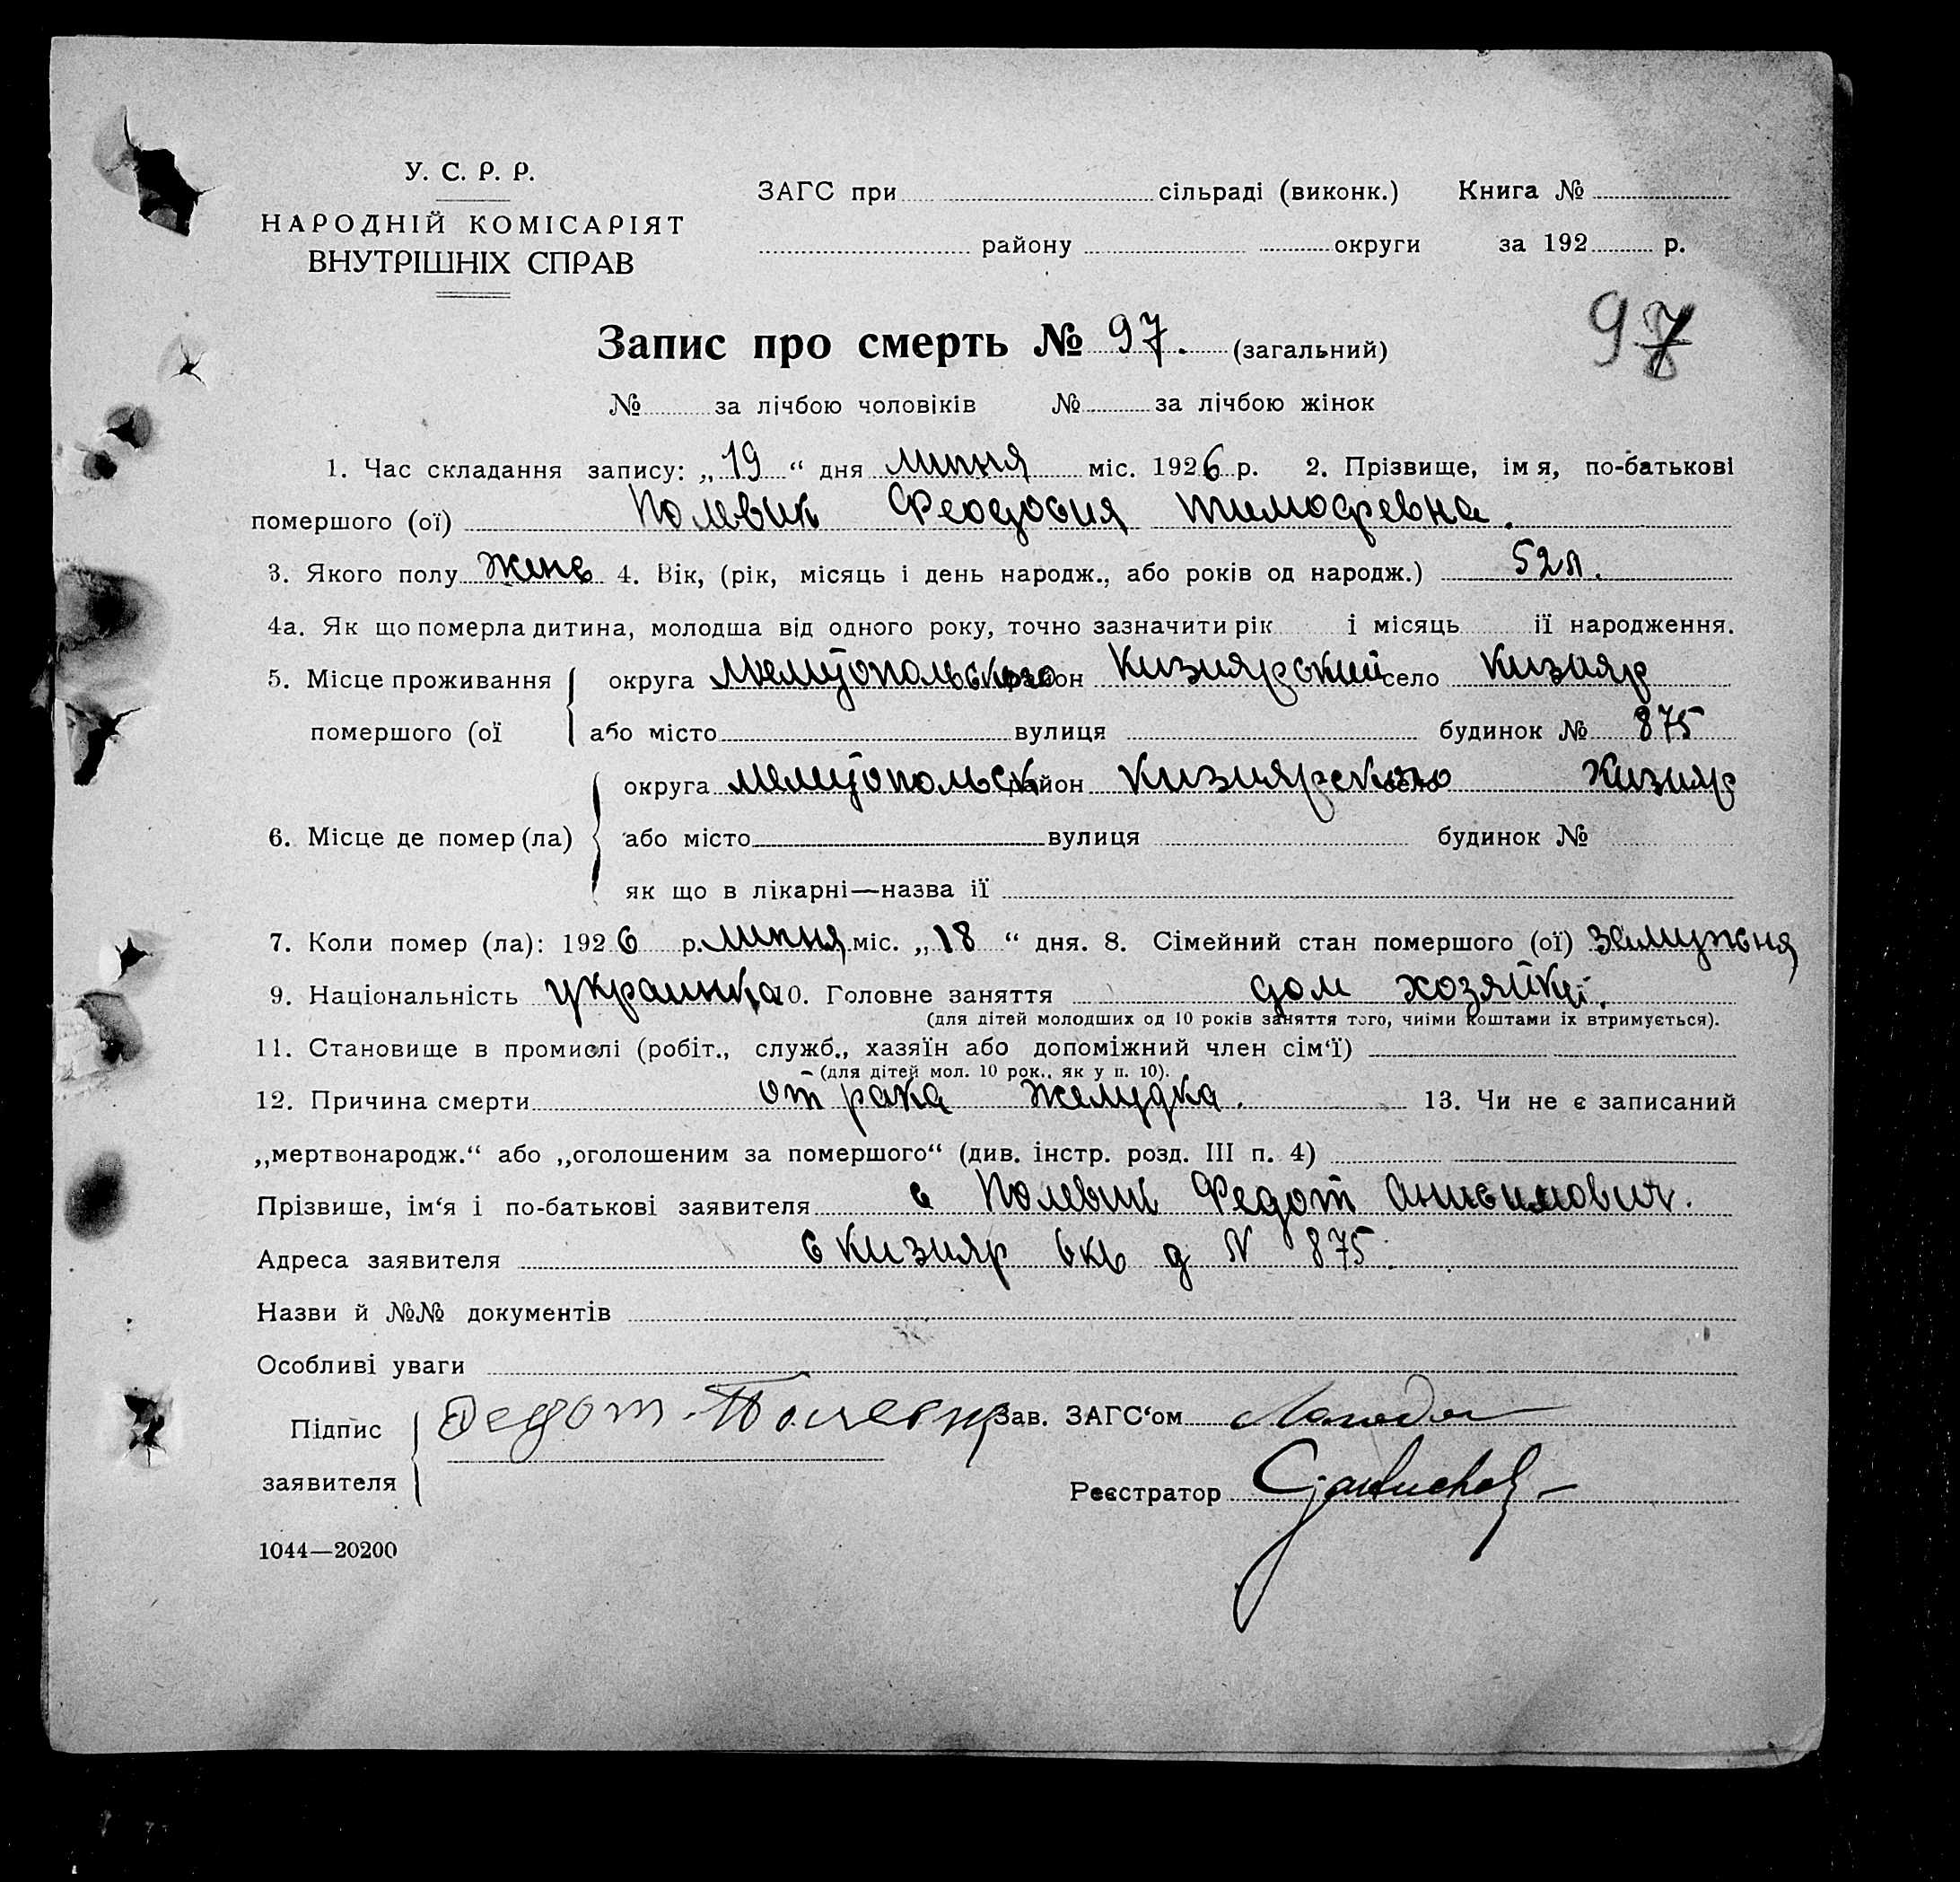 У. С. Р. Р.
НАРОДНІЙ КОМІСАРІЯТ
ВНУТРІШНІХ СПРАВ
ЗАГС при сільраді (виконк.) Книга №
району округи за 192 р.
Запис про смерть № 97. (загальний)
97
№ за лічбою чоловіків № за лічбою жінок
1. Час складання запису: „19“ дня липня міс. 1926 р. 2. Прізвище, імя, по-батькові
помершого (ої) Полевик Феодосия Тимофевна.
3. Якого полу жене 4. Вік, (рік, місяць і день народж., або років од народж.) 52 л.
4а. Як що померла дитина, молодша від одного року, точно зазначити рік і місяць її народження.
5. Місце проживання округа Мелитопольского район Кизиярский село Кизияр
помершого (ої або місто вулиця будинок № 875
округа Мелитопольск район Кизиярского село Кизияр
6. Місце де помер (ла) або місто вулиця будинок №
як що в лікарні—назва її
7. Коли помер (ла): 1926 р. липня міс. „18“ дня. 8. Сімейний стан помершого (ої) замужня
9. Національність украинка 10. Головне заняття дом хозяйка.
(для дітей молодших од 10 років заняття того, чиїми коштами їх втримується).
11. Становище в промислі (робіт., служб., хазяїн або допоміжний член сім‘ї)
(для дітей мол. 10 рок., як у п. 10).
12. Причина смерти от рака желудка. 13. Чи не є записаний
„мертвонародж.“ або „оголошеним за помершого“ (див. інстр. розд. III п. 4)
Прізвише, ім‘я і по-батькові заявителя Полевик Федот Анисимович.
Адреса заявителя с Кизияр д N 875.
Назви й №№ документів
Особливі уваги
Підпис Федот Зав. ЗАГС‘ом
заявителя
Реєстратор
1044—20200